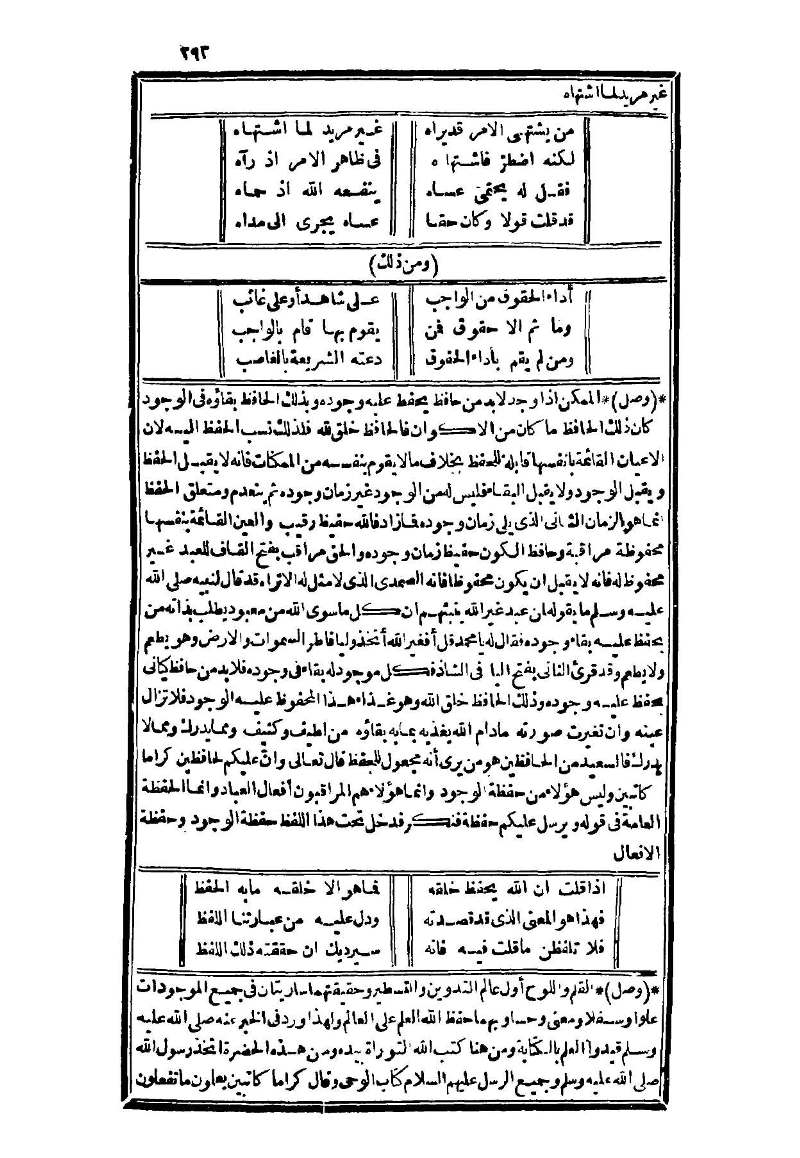 ٢٩٣
غير مريد لما اشتهاه
من يشتهى الامر قد يراه غير مريد لما اشتهاه
لكنه اضطرّ فاشتهاه فى ظاهر الامر اذ رآه
فقل له يحتمى عساه ينفعه الله اذ حماه
قد قلت قولا وكان حقا عساه يجرى الى مداه
(ومن ذلك)
أداء الحقوق من الواجب على شاهد أو على غائب
وما ثم الا حقوق فمن يقوم بها قام بالواجب
ومن لم يقم بأداء الحقوق دعته الشريعة بالغاصب
*(وصل)* الممكن اذا وجد لابد من حافظ يحفظ عليه وجوده وبذلك الحافظ بقاؤه فى الوجود
كان ذلك الحافظ ما كان من الاكوان فالحافظ خلق لله فلذلك نسب الحفظ اليه لان
الاعيان القائمة بانفسها قابلة للحفظ بخلاف ما لا يقوم بنفسه من الممكنات فانه لا يقبل الحفظ
ويقبل الوجود ولا يقبل البقاء فليس له من الوجود غير زمان وجوده ثم ينعدم ومتعلق الحفظ
انما هو الزمان الثانى الذى يلى زمان وجوده فما زاد فالله حفيظ رقيب والعين القائمة بنفسها
محفوظة مراقبة وحافظ الكون حفيظ زمان وجوده والحق مراقب بفتح القاف للعبد غير
محفوظ له فانه لا يقبل ان يكون محفوظا فانه الصمدى الذى لا مثل له الا تراه قد قال لنبيه صلى الله
عليه وسلم ما يقوله لمن عبد غير الله ينبئهم ان كل ما سوى الله من معبود يطلب بذاته من
يحفظ عليه بقاء وجوده فقال له يا محمد قل أفغير الله أتخذ وليا فاطر السموات والارض وهو يطعم
ولا يطعم وقد قرئ الثانى بفتح اليا فى الشاذ فكل موجود له بقاء فى وجوده فلابد من حافظ كيانى
يحفظ عليه وجوده وذلك الحافظ خلق الله وهو غذاء هذا المحفوظ عليه الوجود فلا تزال
عينه وان تغيرت صورته مادام الله يغذيه بما به بقاؤه من لطيف وكثيف ومما يدرك ومما لا
يدرك فالسعيد من الحافظين هو من يرى أنه مجعول للحفظ قال تعالى وانّ عليكم لحافظين كراما
كاتبين وليس هؤلاء من حفظة الوجود وانما هؤلاء هم المراقبون أفعال العباد وانما الحفظة
العامة فى قوله ويرسل عليكم حفظة فنكر فدخل تحت هذا اللفظ حفظة الوجود وحفظة
الافعال
اذا قلت ان الله يحفظ خلقه فما هو الا خلقه مابه الحفظ
فهذا هو المعنى الذى قد قصدته ودل عليه من عبارتنا اللفظ
فلا تلفظن ما قلت فيه فانه سيرديك ان حققته ذلك اللفظ
*(وصل)* القلم واللوح أول عالم التدوين والتسطير وحقيقتهما ساريتان فى جميع الموجودات
علوا وسفلا ومعنى وحسا وبهما حفظ الله العلم على العالم ولهذا ورد فى الخبر عنه صلى الله عليه
وسلم قيدوا العلم بالكتابة ومن هنا كتب الله التوراة بيده ومن هذه الحضرة اتخذ رسول الله
صلى الله عليه وسلم وجميع الرسل عليهم السلام كتاب الوحى وقال كراما كاتبين يعلون ما تفعلون